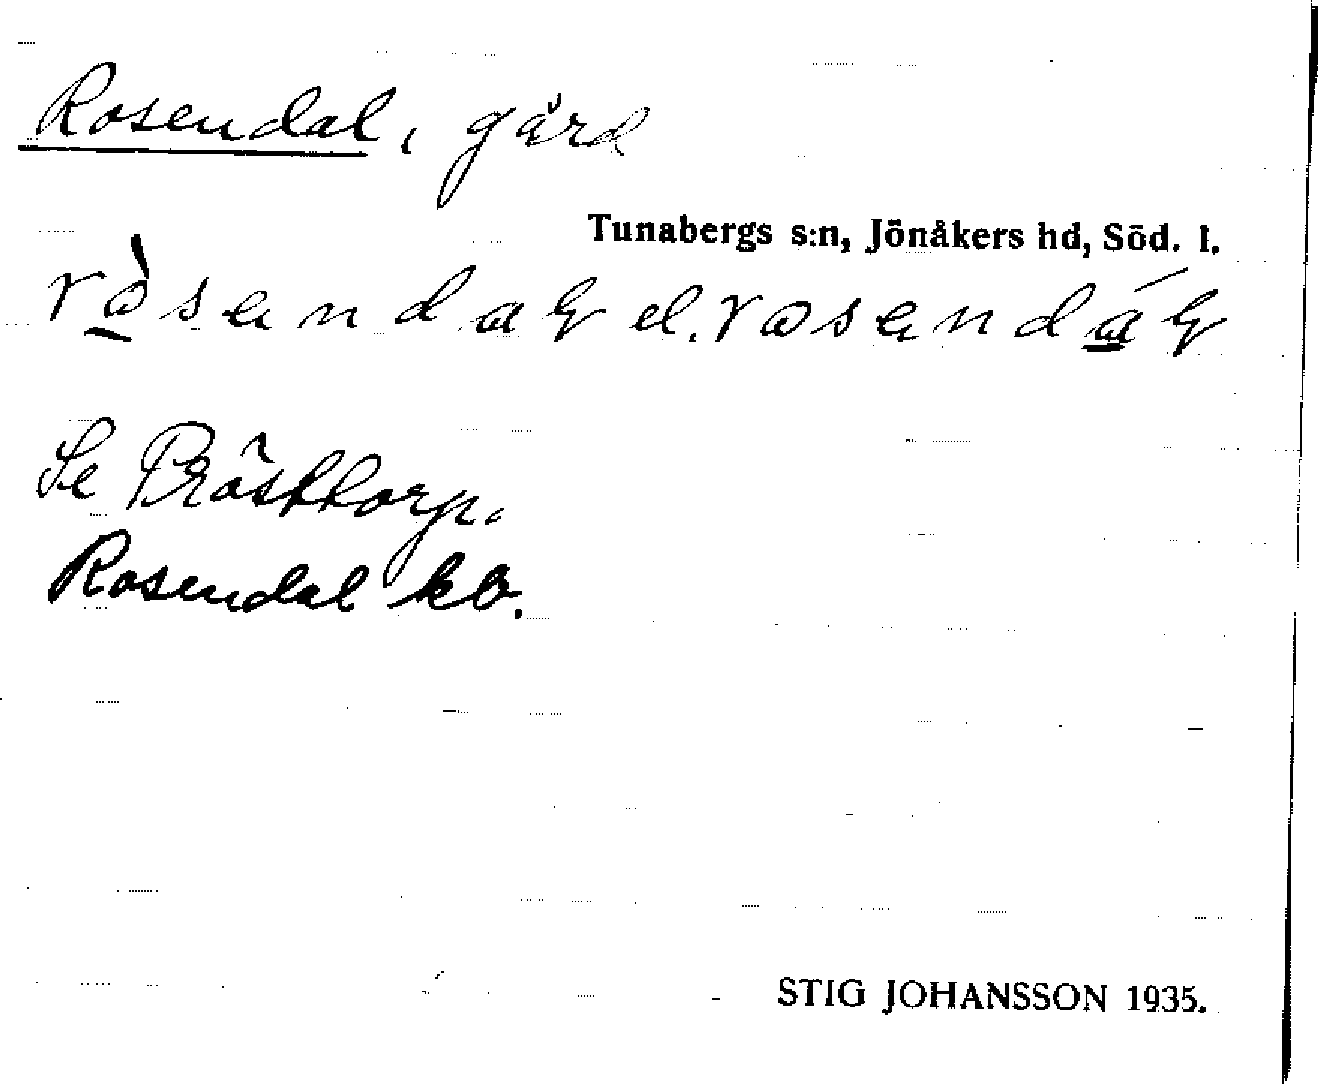 Rosendal, gård
Tunabergs s:n, Jönåkers hd, Söd. l.
rò̲sendaɫ el. rosendá̲ɫ
Se Prästtorp.
Rosendal kb.
STIG JOHANSSON 1935.